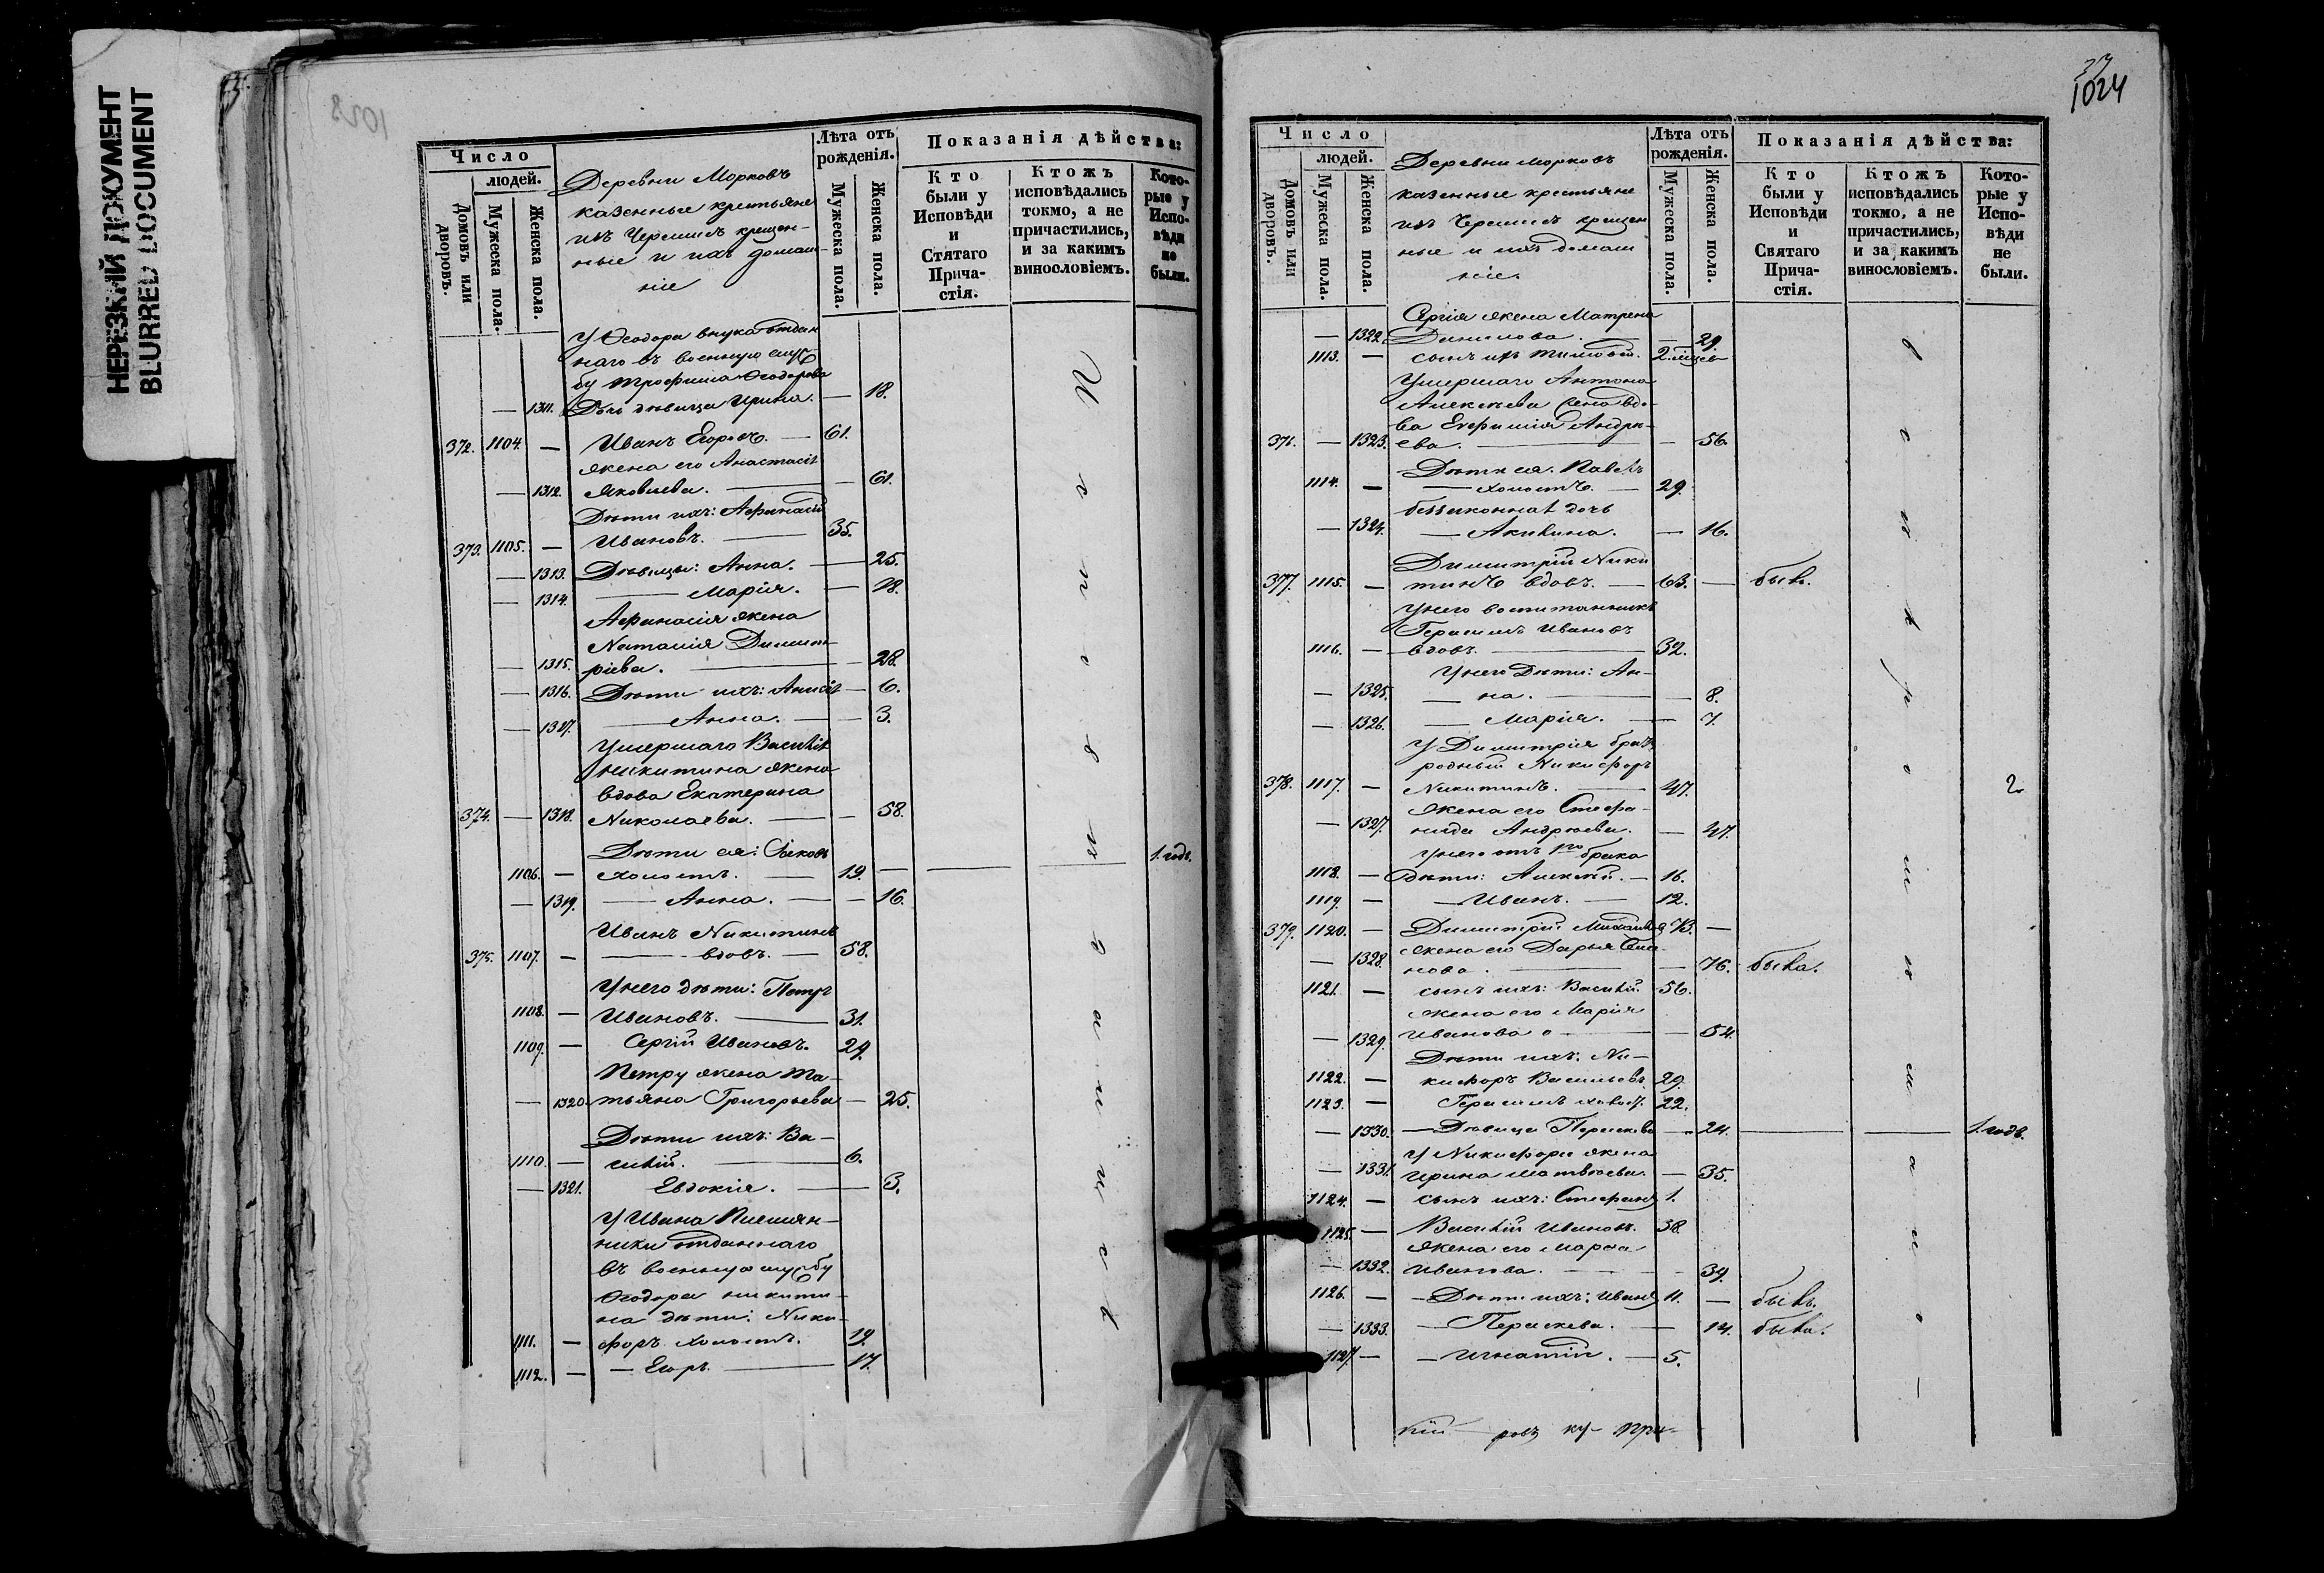 НЕРЕЗКИЙ ДОКУМЕНТ
BLURRED DOCUMENT
Число
людей.
Домовъ или дворовъ.
Мужеска пола.
Женска пола.
Деревни Морковъ
казенные крестьяне
изъ Черемисъ крещен-
ные и ихъ домаш-
ніе
Лѣта отъ рожденія.
Мужеска пола.
Женска пола.
Показанія дѣйства:
Кто были у Исповѣди и Стятаго Прича-стія.
Ктожъ исповѣдались токмо, а не причастились, и за какимъ винословіемъ.
Кото-рые у Испо-вѣди не были.
У Ѳеодора внука отдан
наго въ военную служ
бу Трофима Ѳеодорова
— 1311. Дочь дѣвица Ирина. — 18.
372. 1104. — Иванъ Егоровъ. — 61.
жена его Анастасія
— 1312. Яковлева. — 61.
Дѣти ихъ: Афанасій
373. 1105. — Ивановъ. — 35.
— 1313. Дѣвицы: Анна. — 25.
— 1314. — Марія. — 18.
Афанасія жена
Наталія Димит-
— 1315. ріева. — 28.
— 1316. Дѣти ихъ: Анисія — 6.
— 1317. — Анна. — 3.
Умершаго Василія
Никитина жена
вдова Екатерина
374. — 1318. Николаева. — 58.
Дѣти ея: Яковъ
1106. — холостъ. — 19. — 1. годъ.
— 1319. — Анна. — 16.
Иванъ Никитинъ
375. 1107. — вдовъ. — 58.
У него дѣти: Петръ
1108. — Ивановъ. — 31.
1109. — Сергій Ивановъ. 29.
Петру жена Та-
— 1320. тьяна Григорьева — 25.
Дѣти ихъ: Ва-
1110. — силій. — 6.
— 1321. Евдокія. — 3.
У Ивана Племян-
ника отданнаго
въ военную службу
Ѳеодора Никити-
на дѣти: Ники-
1111. — форъ холостъ. 19.
1112. — Егоръ. — 17.
1024
Число
людей.
Домовъ или дворовъ.
Мужеска пола.
Женска пола.
Деревни Морковъ
казенные крестьяне
изъ Черемисъ крещен
ные и ихъ домаш
ніе.
Лѣта отъ рожденія.
Мужеска пола.
Женска пола.
Показанія дѣйства:
Кто были у Исповѣди и Святаго Прича-стія.
Ктожъ исповѣдались токмо, а не причастились, и за какимъ винословіемъ.
Кото-рые у Испо-вѣди не были.
Сергія жена Матрена
— 1322. Данилова. — 29.
1113. — сынъ ихъ Тимофей. 2. мѣсяц
Умершаго Антона
Алексѣева жена вдо-
ва Евфимія Андре-
371. — 1323. ева. — 56.
Дѣти ея: Павелъ
1114. — холостъ. — 29.
беззаконная дочь
— 1324. — Акилина. — 16.
Димитрій Ники
377. 1115. — тинъ вдовъ. — 63. — былъ.
У него воспитанникъ
Герасимъ Ивановъ
1116. — вдовъ. — 32.
У него Дѣти: Ан-
— 1325. — на. — 8.
— 1326. — Марія. — 7.
У Димитрія братъ
родный Никифоръ
378. 1117. — Никитинъ. — 47. 2
жена его Стефа-
— 1327. нида Андреева. — 47.
У него отъ 1го брака
1118. — дѣти: Алексѣй. — 16.
1119. — Иванъ. — 12.
379. 1120. — Димитрій Михайлов 78. —
жена его Дарья Сим
— 1328. нова. — 76. была.
1121. — сынъ ихъ: Василій. 56.
жена его Марія
— 1329. Иванова — 54.
Дѣти ихъ: Ни-
1122. — кифоръ Васильевъ. 29.
1123. — Герасимъ холост. 22.
— 1330. — Дѣвица Параскева — 24. — 1. годъ.
У Никифора жена
— 1331. Ирина Матвѣева. — 35.
1124. — сынъ ихъ: Стефанъ 1.
1125. — Василій Ивановъ. 38.
жена его Марѳа
— 1332. Иванова. — 39.
1126. — Дѣти ихъ: Иванъ 11. — былъ.
— 1333. — Параскева. — 14. была.
1127. — Игнатій. — 5.
кій ровъ ку- При-